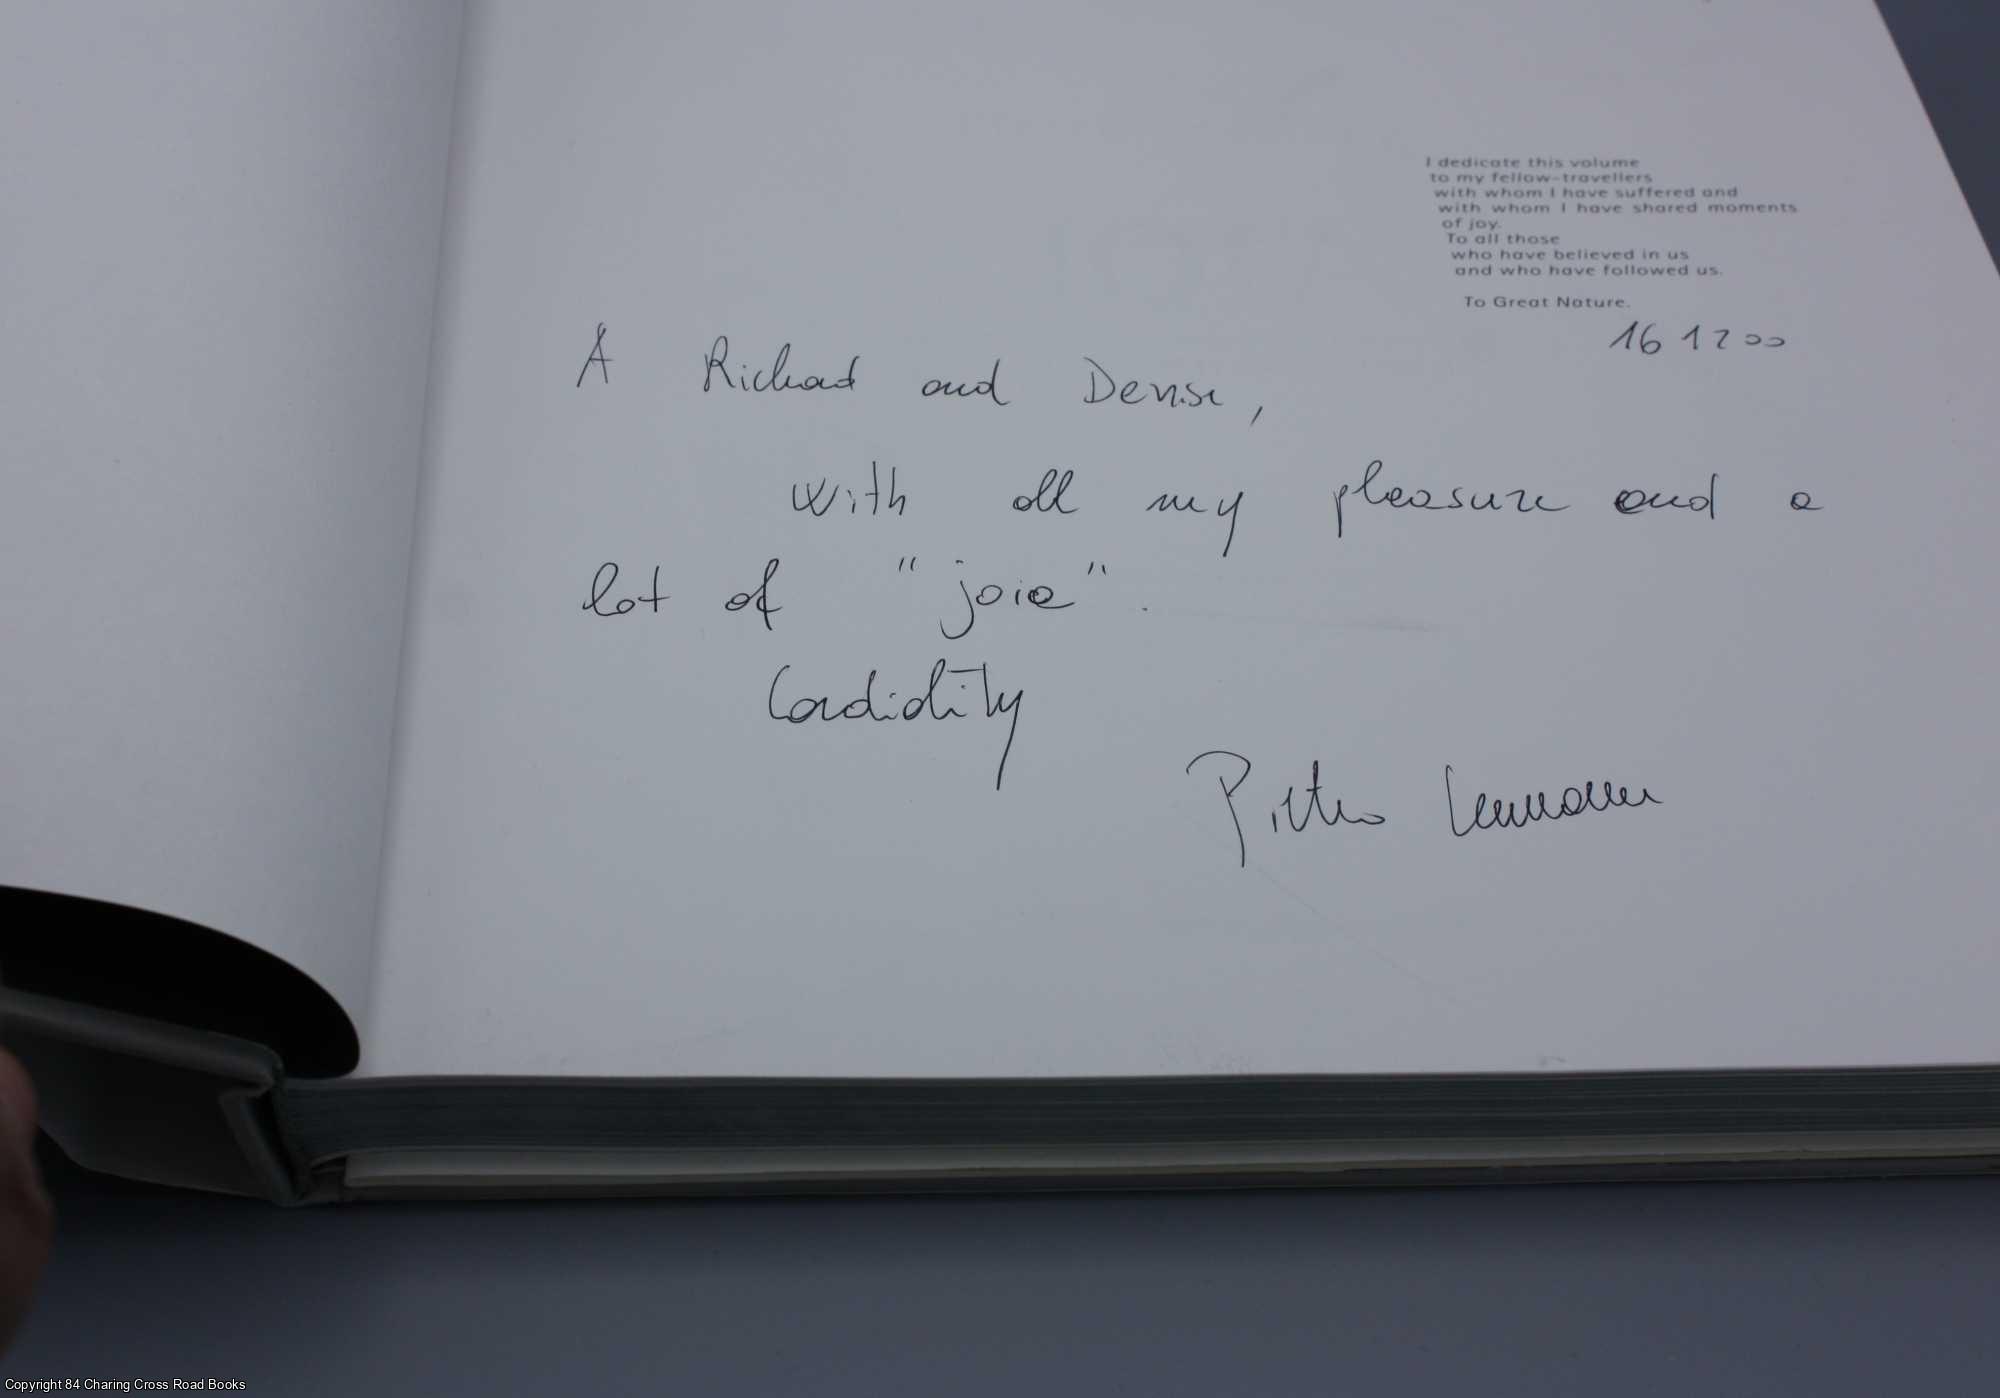 I dedicate this volume
to my fellow-travellers
with whom I have suffered and
with whom I have shared moments
of joy.
To all those
who have believed in us
and who have followed us.
To Great Nature.
16 12 00
A Richard and Denise,
with all my pleasure and a
lot of "joie".
Cordiality
Pietro Leemann
Copyright 84 Charing Cross Road Books